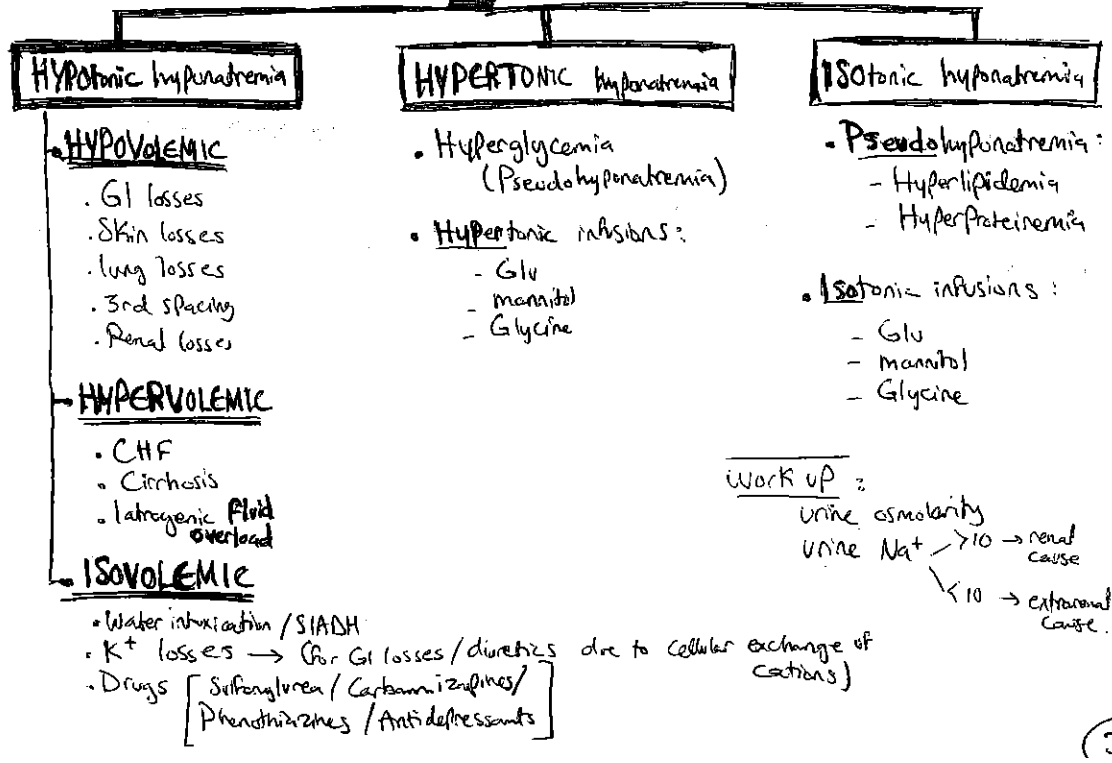 HYPOtonic hyponatremia
• HYPOVOLEMIC
. GI losses
. Skin losses
. lung losses
. 3rd spacing
. Renal losses
HYPERVOLEMIC
• CHF
• Cirrhosis
• Iatrogenic fluid
overload
• ISOVOLEMIC
• Water intoxication / SIADH
• K⁺ losses → (for GI losses / diuretics due to cellular exchange of
cations)
• Drugs [ Sulfonylurea / Carbamizapines /
Phenothiazines / Antidepressants ]
HYPERTONIC hyponatremia
• Hyperglycemia
(Pseudohyponatremia)
• Hypertonic infusions :
- Glu
- mannitol
- Glycine
ISOtonic hyponatremia
• Pseudohyponatremia :
- Hyperlipidemia
- Hyperproteinemia
• Isotonic infusions :
- Glu
- mannitol
- Glycine
Work up :
urine osmolarity
urine Na⁺ >10 → renal
cause
<10 → extrarenal
cause.